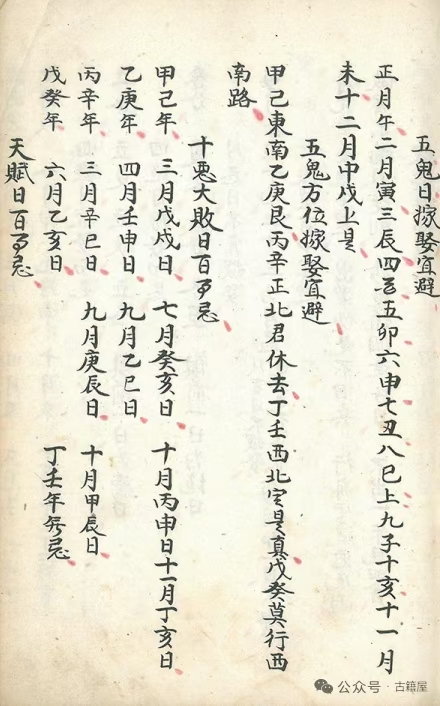 五鬼日嫁娶宜避
正月午二月寅三辰四酉五卯六申七丑八巳上九子十亥十一月
未十二月中戌上是
五鬼方位嫁娶宜避
甲己東南乙庚艮丙辛正北君休去丁壬西北定是真戊癸莫行西
南路
十恶大敗日百事忌
甲己年 三月戊戌日 七月癸亥日 十月丙申日十一月丁亥日
乙庚年 四月壬申日 九月乙巳日
丙辛年 三月辛巳日 九月庚辰日 十月甲辰日
戊癸年 六月乙亥日 丁壬年無忌
天賦日百事忌
公众号·古籍屋